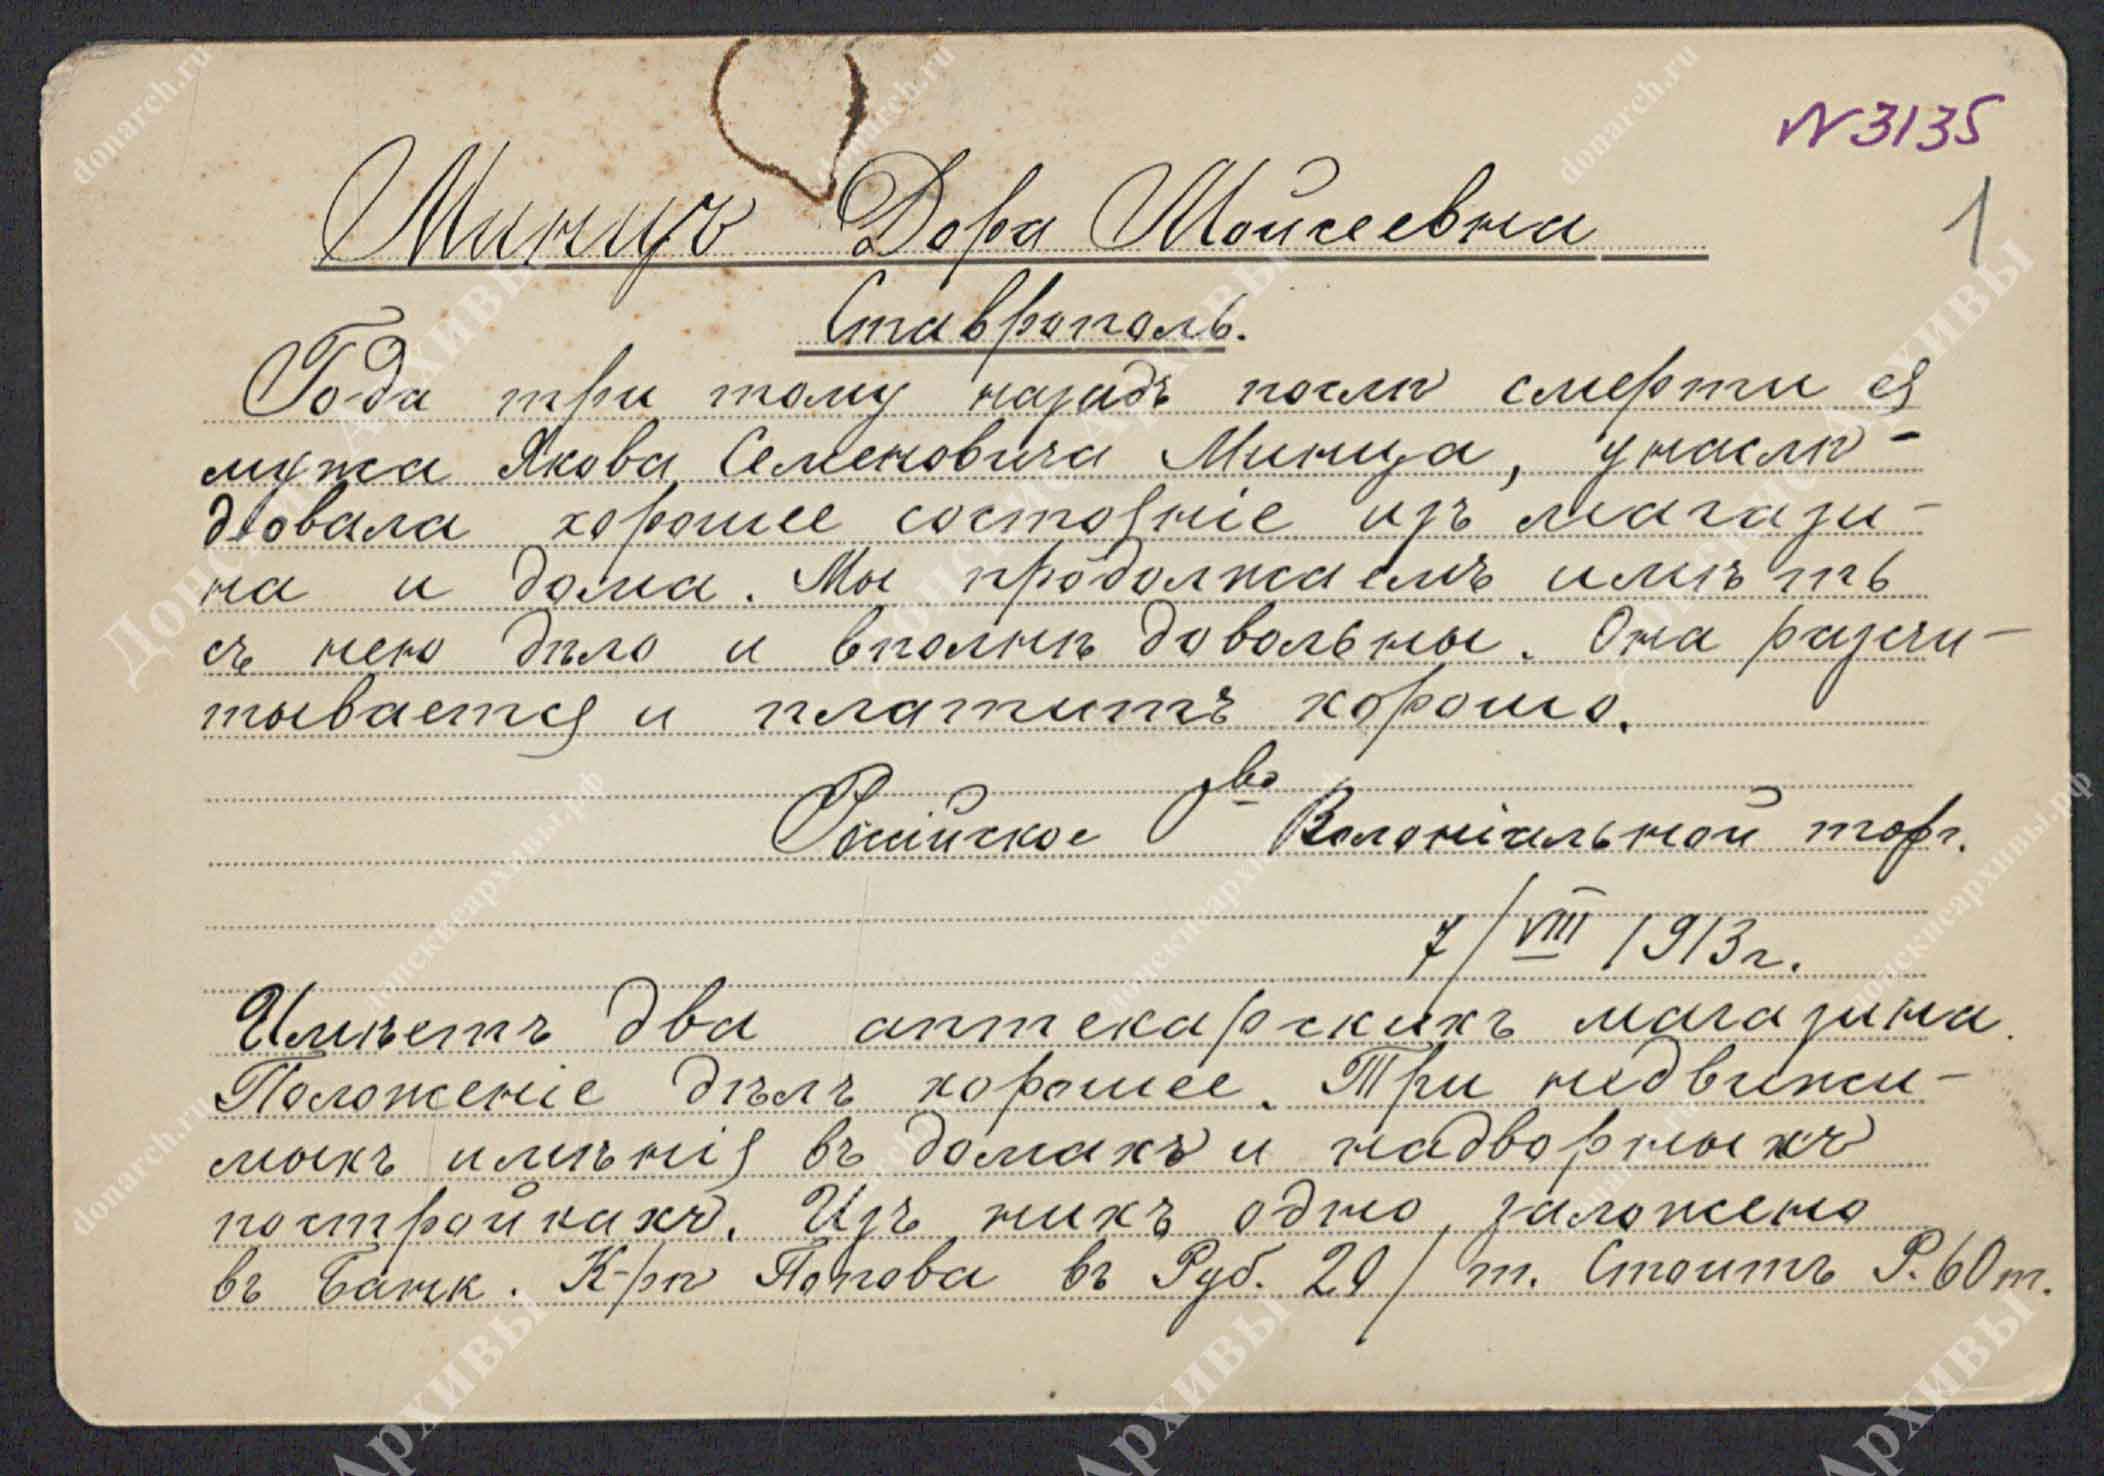 N 3135
1
Минцъ Дора Мойсеевна
Ставрополь.
Года три тому назадъ послѣ смерти ея
мужа Якова Семеновича Минца, унаслѣ-
довала хорошее состояніе изъ магази-
на и дома. Мы продолжаемъ имѣть
съ нею дѣло и вполнѣ довольны. Она разчи-
тывается и платитъ хорошо.
Россійское Т-во Колоніальной торг.
7/VIII 1913 г.
Имѣетъ два аптекарскихъ магазина.
Положеніе дѣлъ хорошее. Три недвижи-
мыхъ имѣнія въ домахъ и надворныхъ
постройкахъ. Изъ нихъ одно заложено
въ Банк. К-рѣ Попова въ Руб. 20/т. Стоитъ Р. 60 т.
donarch.ru
Донские Архивы
донскиеархивы.рф